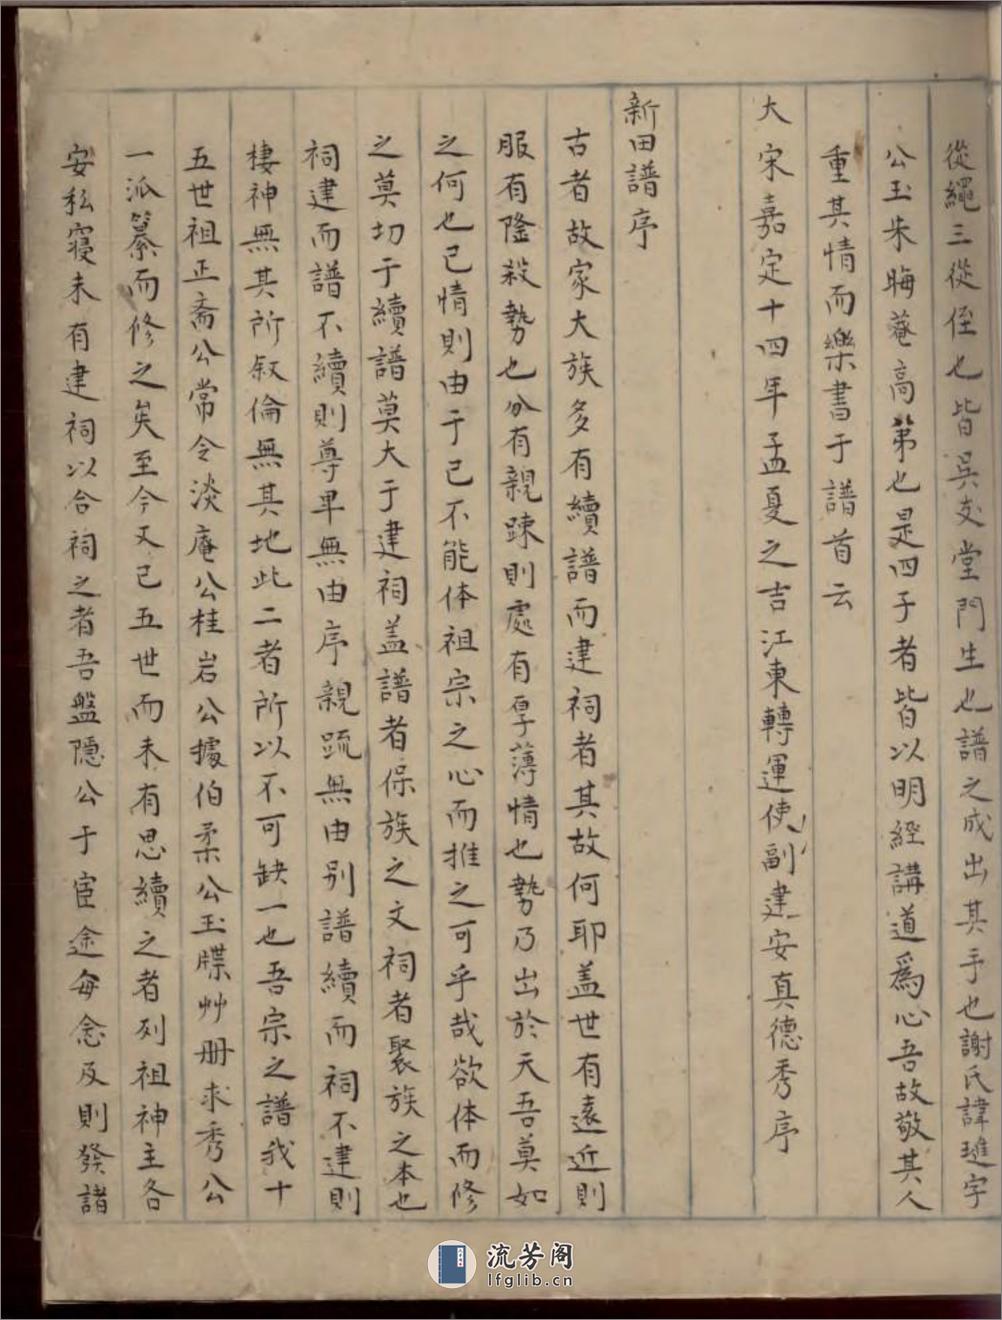 從繩三從侄也皆吳友堂門生也譜之成出其手也謝氏諱璡字
公玉朱晦菴高第也是四子者皆以明經講道爲心吾故敬其人
重其情而樂書于譜首云
大宋嘉定十四年孟夏之吉江東轉運使副建安真德秀序
新田譜序
古者故家大族多有續譜而建祠者其故何耶盖世有遠近則
服有隆殺勢也分有親踈則處有厚薄情也勢乃出於天吾莫如
之何也已情則由于已不能体祖宗之心而推之可乎哉欲体而修
之莫切于續譜莫大于建祠盖譜者保族之文祠者聚族之本也
祠建而譜不續則尊卑無由序親䟽無由别譜續而祠不建則
棲神無其所叙倫無其地此二者所以不可缺一也吾宗之譜我十
五世祖正斋公常令淡庵公桂岩公據伯柔公玉牒艸册求秀公
一派纂而修之矣至今又已五世而未有思續之者列祖神主各
安私寝未有建祠以合祠之者吾盤隠公于宦途每念及則發諸
流芳阁
lfglib.cn